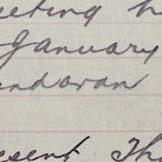 eeting h
January
ndoran
esent Th